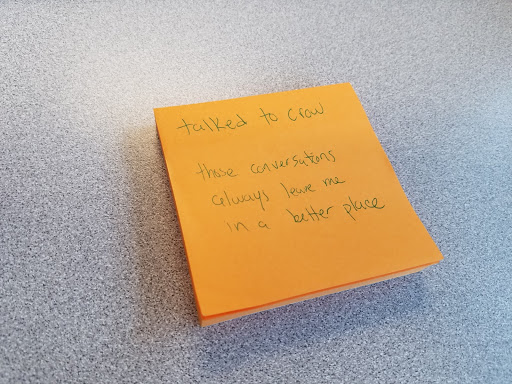 talked to crow
those conversations
always leave me
in a better place